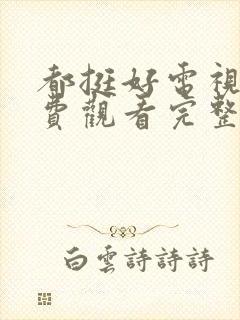 都挺好電視
費觀看完整
白雲詩詩詩